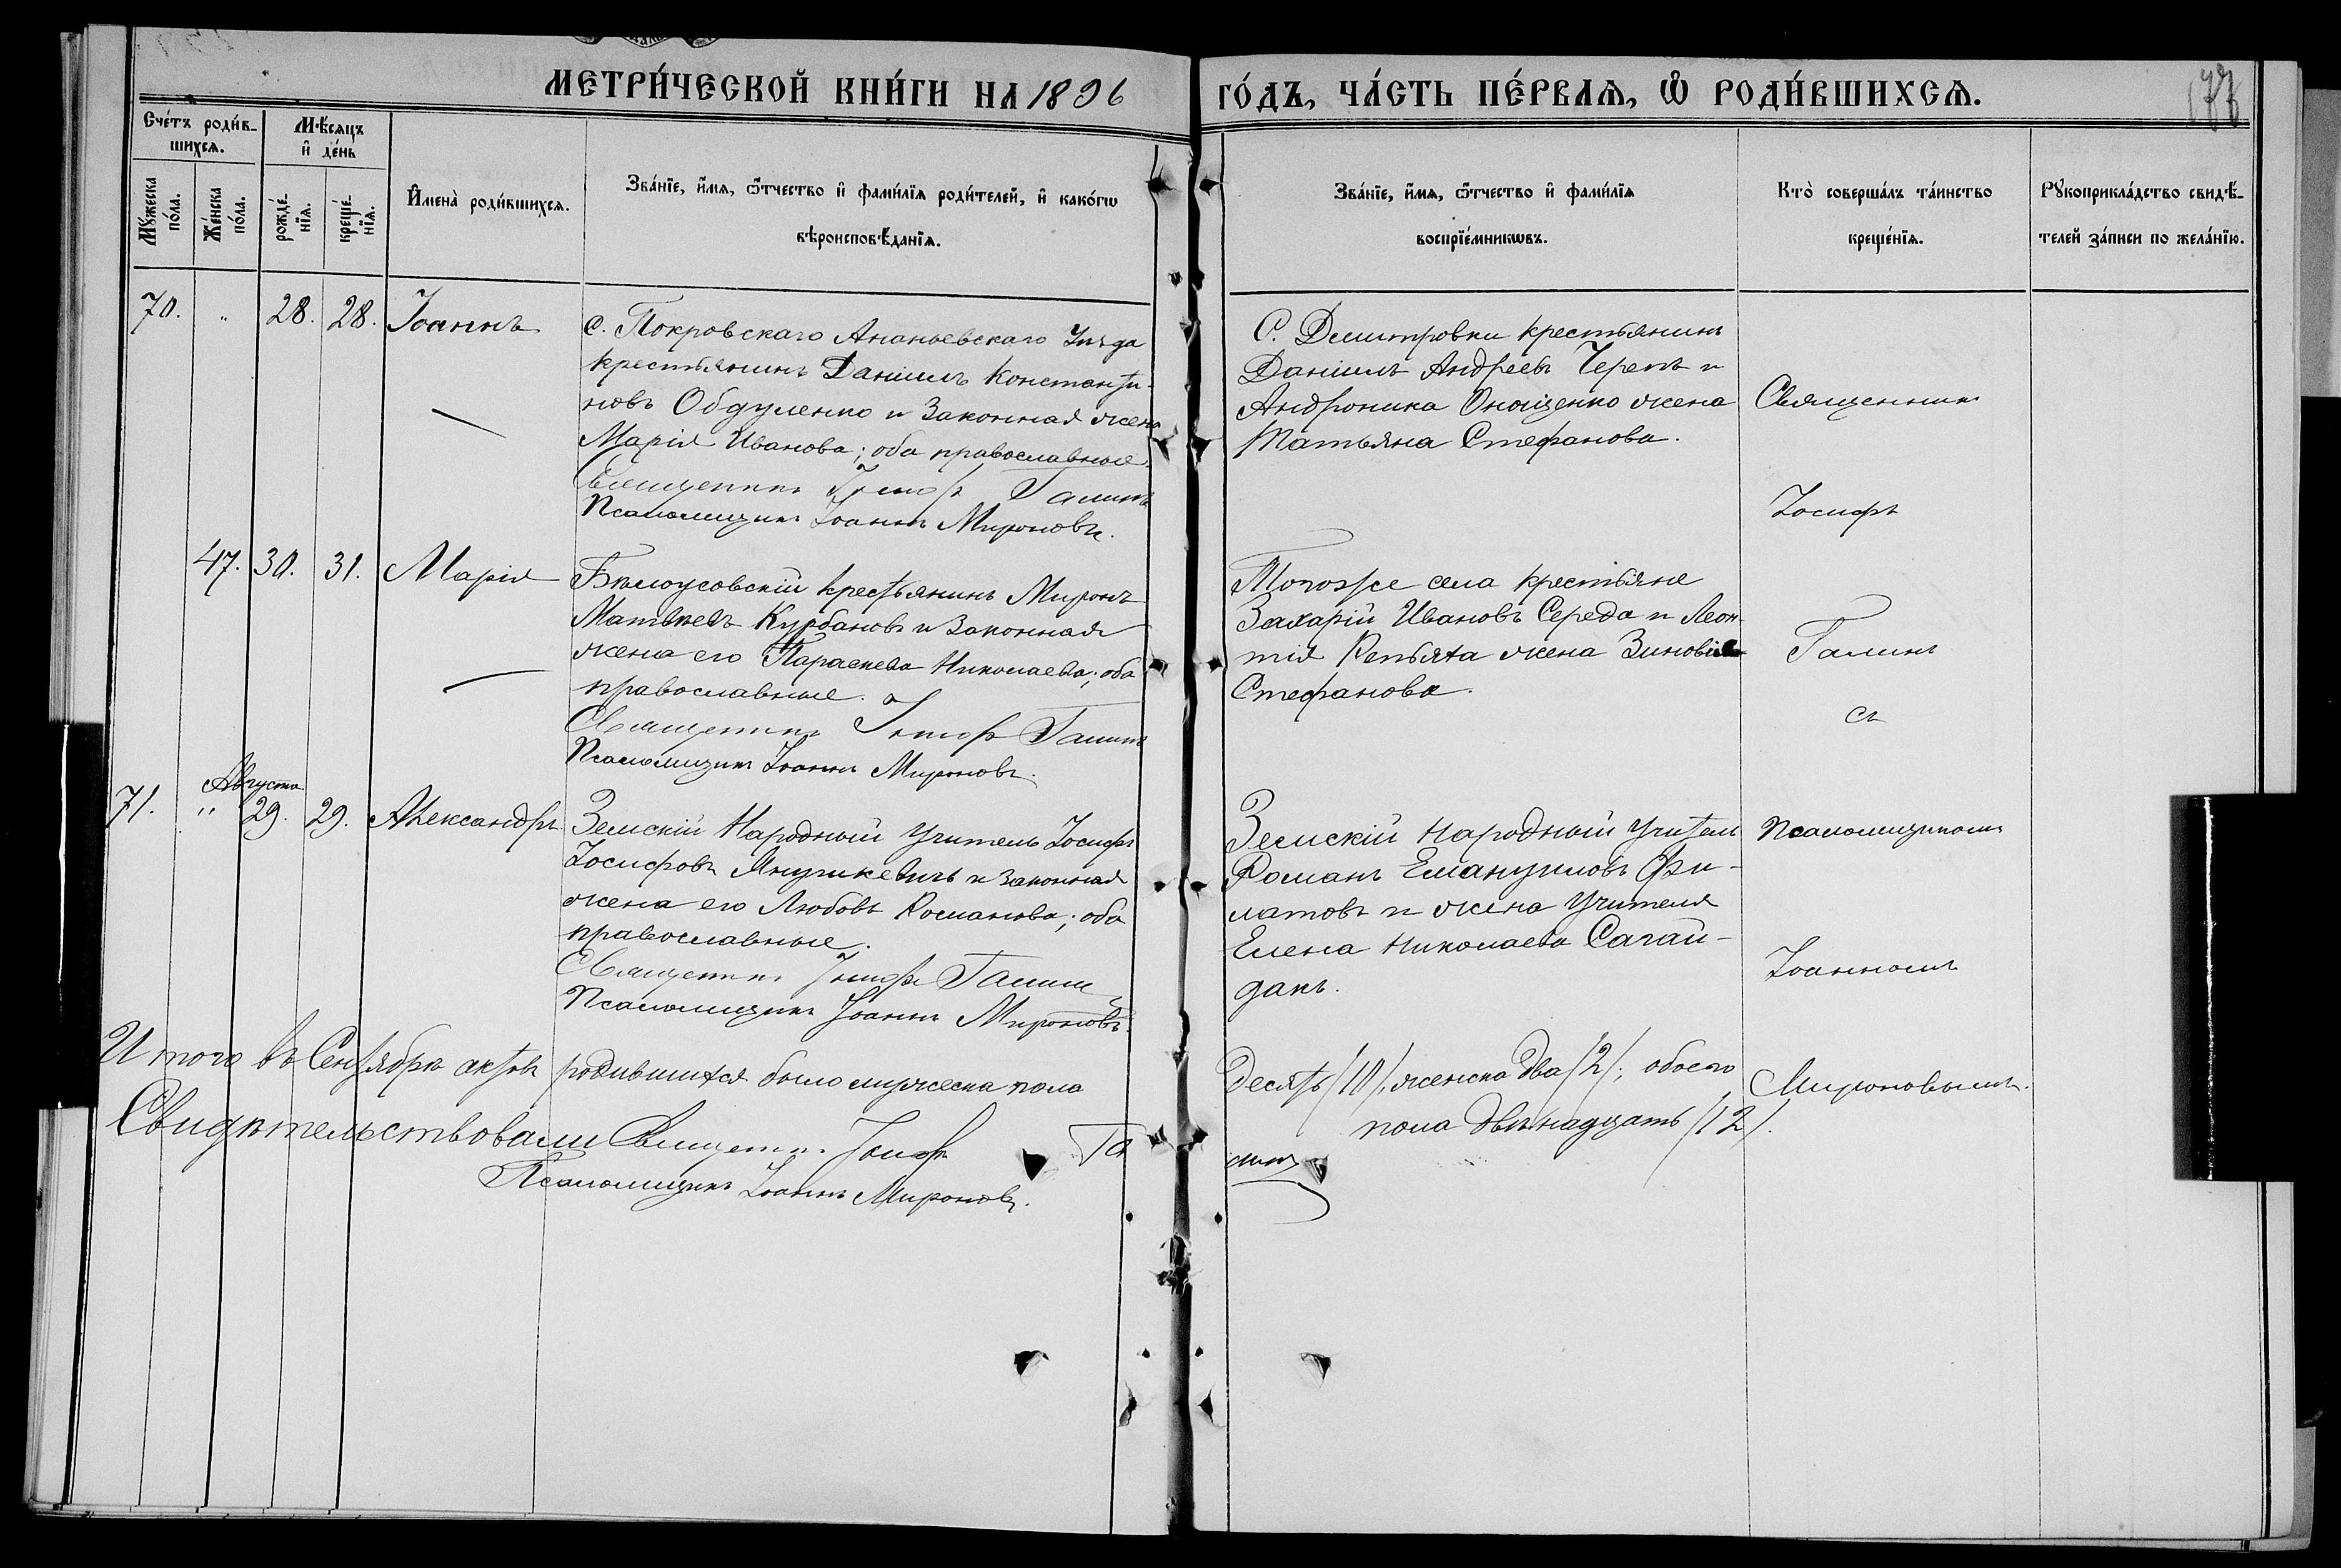 МЕТРИ́ЧЕСКОЙ КНИ́ГИ НА 1896 ГО́ДЪ, ЧА́СТЬ ПЕ́РВАѦ, Ѡ РОДИ́ВШИХСѦ.
177
Сче́тъ роди́в-
шихсѧ.
Мѣ́сѧцъ
и де́нь
Мꙋ́жеска
по́ла.
Же́нска
по́ла.
рожде́-
нїѧ.
креще́-
нїѧ.
Имена̀ роди́вшихсѧ.
Зва́нїе, и́мѧ, ѻ́тчество и фами́лїѧ роди́телей, и како́гѡ
вѣроисповѣ́данїѧ.
Зва́нїе, и́мѧ, ѻ́тчество и фами́лїѧ
воспрїе́мникѡвъ.
Кто̀ соверша́лъ та́инство
креще́нїѧ.
Рꙋкоприкла́дство свидѣ́-
телей за́писи по жела́нїю.
70. „ 28. 28. Іоаннъ
с. Покровскаго Ананьевскаго Уѣзда
крестьянинъ Даніилъ Константи-
новъ Обдуленко и Законная жена
Марія Иванова; оба православные.
Священникъ Іосифъ Галинъ
Псаломщикъ Іоаннъ Мироновъ.
С. Димитровки крестьянинъ
Даніилъ Андреевъ Черепъ и
Андроника Онощенко жена
Татьяна Стефанова.
Священникъ
Іосифъ
47. 30. 31. Марія
Бѣлоусовскій крестьянинъ Миронъ
Матвѣевъ Курбановъ и Законная
жена его Параскева Николаева; оба
православные.
Священникъ Іосифъ Галинъ
Псаломщикъ Іоаннъ Мироновъ.
Тогоже села крестьяне
Захарій Ивановъ Середа и Леон-
тія Репьята жена Зиновія
Стефанова.
Галинъ
съ
Августа
71. „ 29. 29. Александръ.
Земскій Народный Учитель Іосифъ
Іосифовъ и Законная
жена его Любовь Романова; оба
православные.
Священникъ Іосифъ Галинъ
Псаломщикъ Іоаннъ Мироновъ.
Земскій Народный Учитель
Романъ Емануиловъ Фи-
латовъ и жена Учителя
Елена Николаева Сагай-
дакъ.
Псаломщикомъ
Іоанномъ
Мироновымъ.
Итого въ Сентябрѣ актовъ родившихся было мужеска пола
Десять /10/, женска два /2/; обоего
пола двѣнадцать /12/.
Свидѣтельствовали Священникъ Іосифъ Га
линъ
Псаломщикъ Іоаннъ Мироновъ.